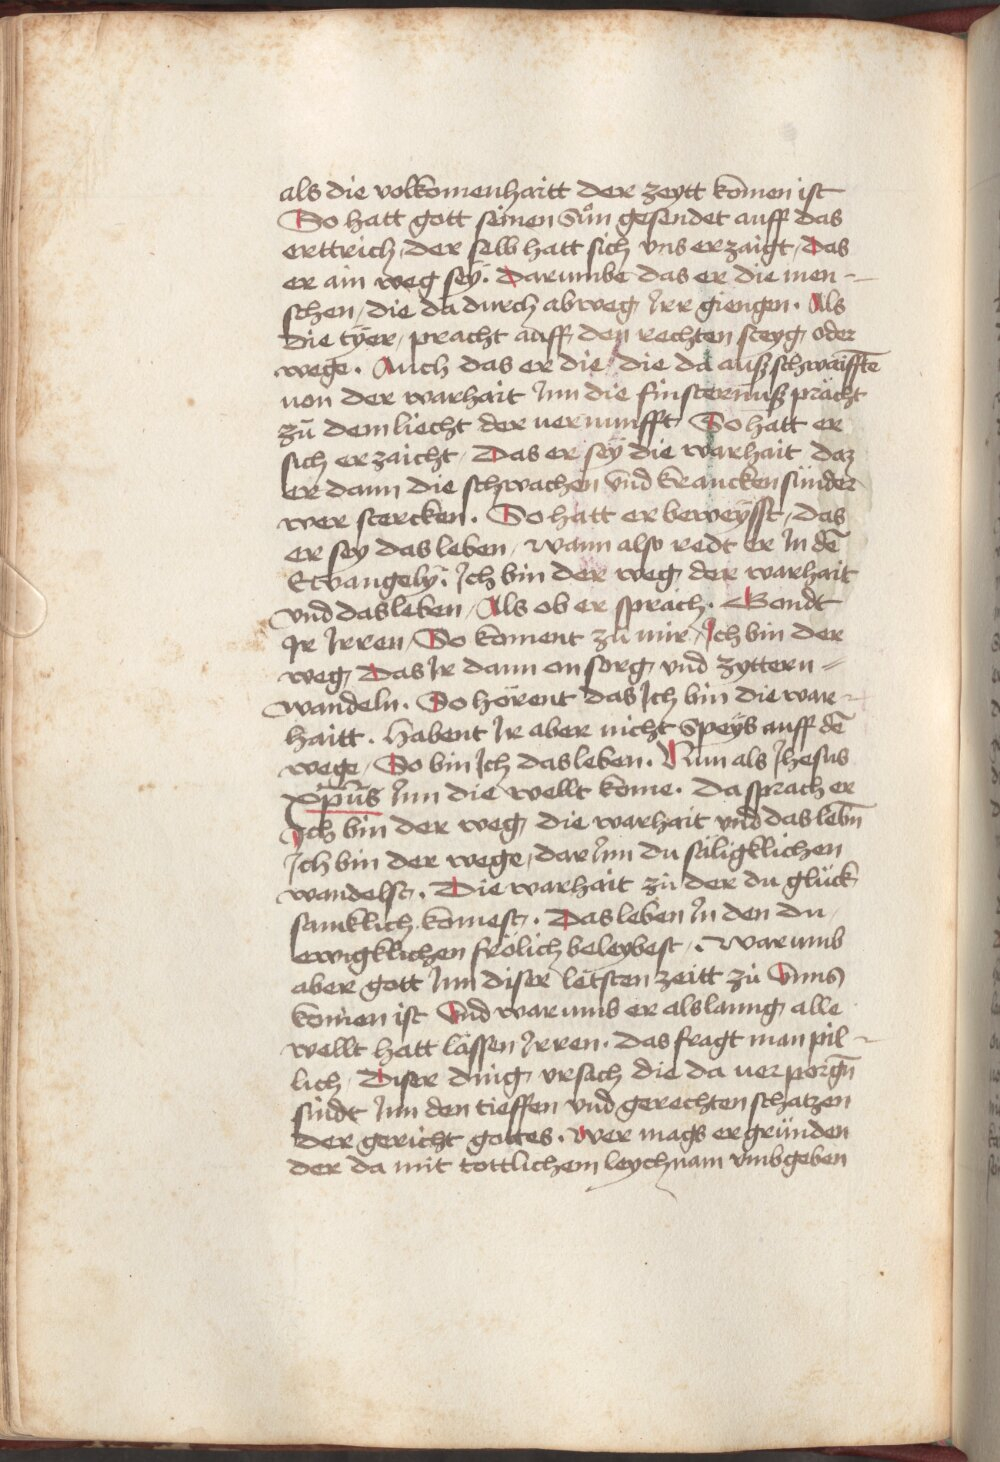 als die volkomenhaitt der zeytt komen ist
So hatt gott seinen Sůn gesendet auff das
erttrich, der selb hatt sich vns erzaigt, Das
er ain weg sey. Darumbe das er die men-
schen, die da durch abweg Irr giengen. Als
die tÿer, pracht auff den rechten steyg oder
wege. Auch das er die die da außschwaifftē
von der warhait Inn die finsternuß prächt
zů dem liecht der vernunfft So hatt er
sich erzaicht, Das er seÿ die warhait daz
er dann die schwachen vnd krancken sünder
wer stercken. So hatt er beweÿsst, das
er sey das leben, wann also redt er In dē
Ewangely. Ich bin der weg der warhait
vnd das leben, Als ob er sprach. Gondt
Ir Irren, So koment zů mir, Ich bin der
weg, Das Ir dann on sorg vnd zyttern
wandeln. So hörent das Ich bin die war-
haitt. Habent Ir aber nicht Speÿs auff dē
wege, So bin Ich das leben. Nun als Jhesus
xp̄us Inn die wellt kome. Da sprach er
Ich bin der weg die warhait vnd das lebn̄
Ich bin der wege, dar Inn du säligklichen
wandelst. Die warhait zů der du glück
samklich komest. Das leben In den du
ewigklichen frölich beleybest. Warumb
aber gott Inn diser letsten zeitt zů vnns
komen ist Vnd warumb er als lanng alle
wellt hatt lässen Irren. das fragt man pil-
lich, Diser ding vrsach die da verporgn̄
sindt Inn den tieffen vnd gerechten schatzen
der gericht gottes. Wer mags ergründen
der da mit tottlichem leychnam vmbgeben